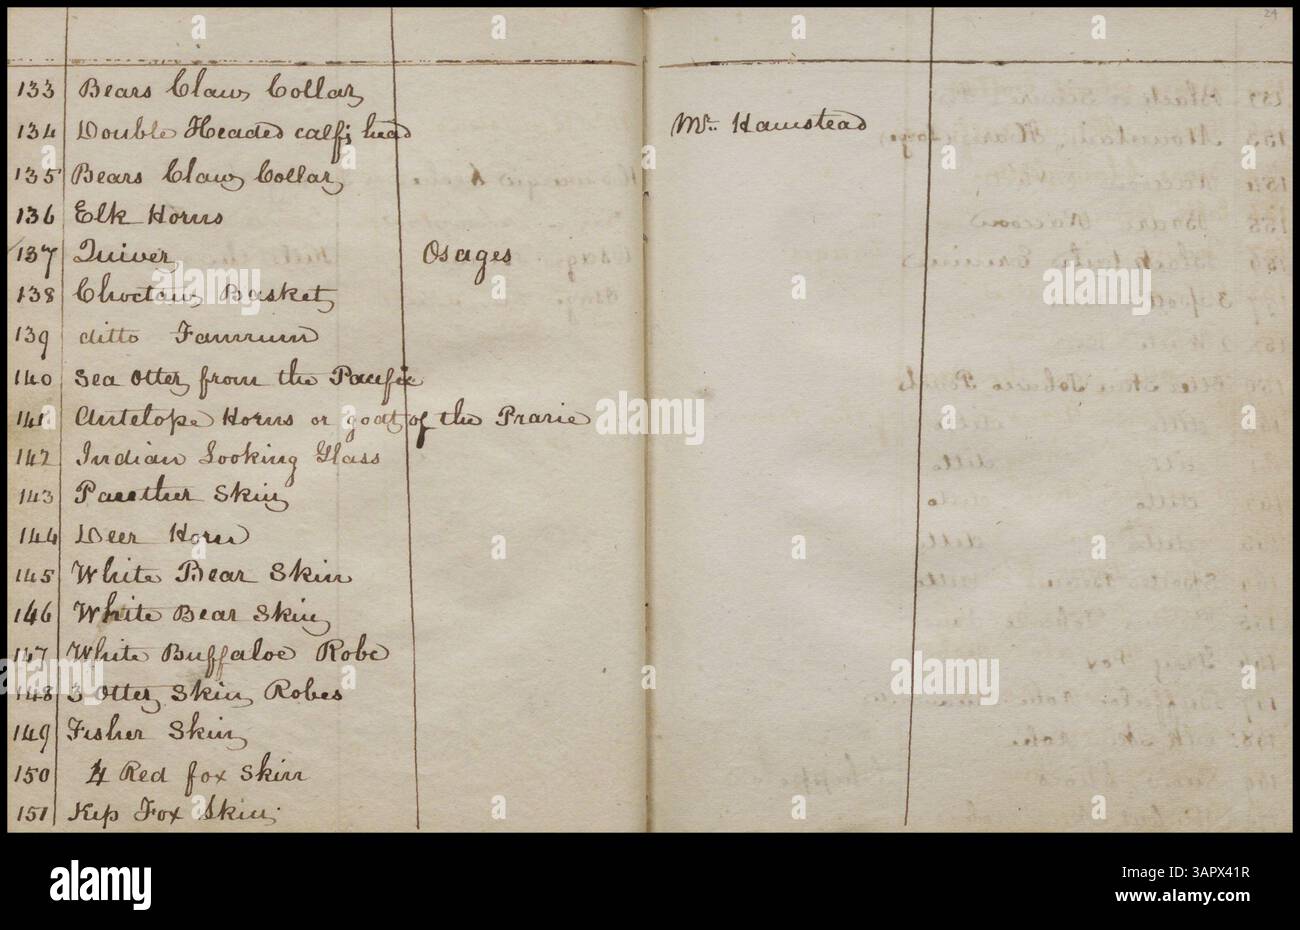 24
133 Bears Claw Collar
134 Double Headed calfs head Mr. Hamstead
135 Bears Claw Collar
136 Elk Horns
137 Quiver Osages
138 Choctaw Basket
139 ditto
140 Sea Otter from the Pacific
141 Antelope Horns or goat of the Prarie
142 Indian Looking Glass
143 Panther Skin
144 Deer Horn
145 White Bear Skin
146 White Bear Skin
147 White Buffaloe Robe
148 3 Otter Skin Robes
149 Fisher Skin
150 4 Red fox Skin
151 Kep Fox Skin
alamy
Image ID: 3APX41R
www.alamy.com